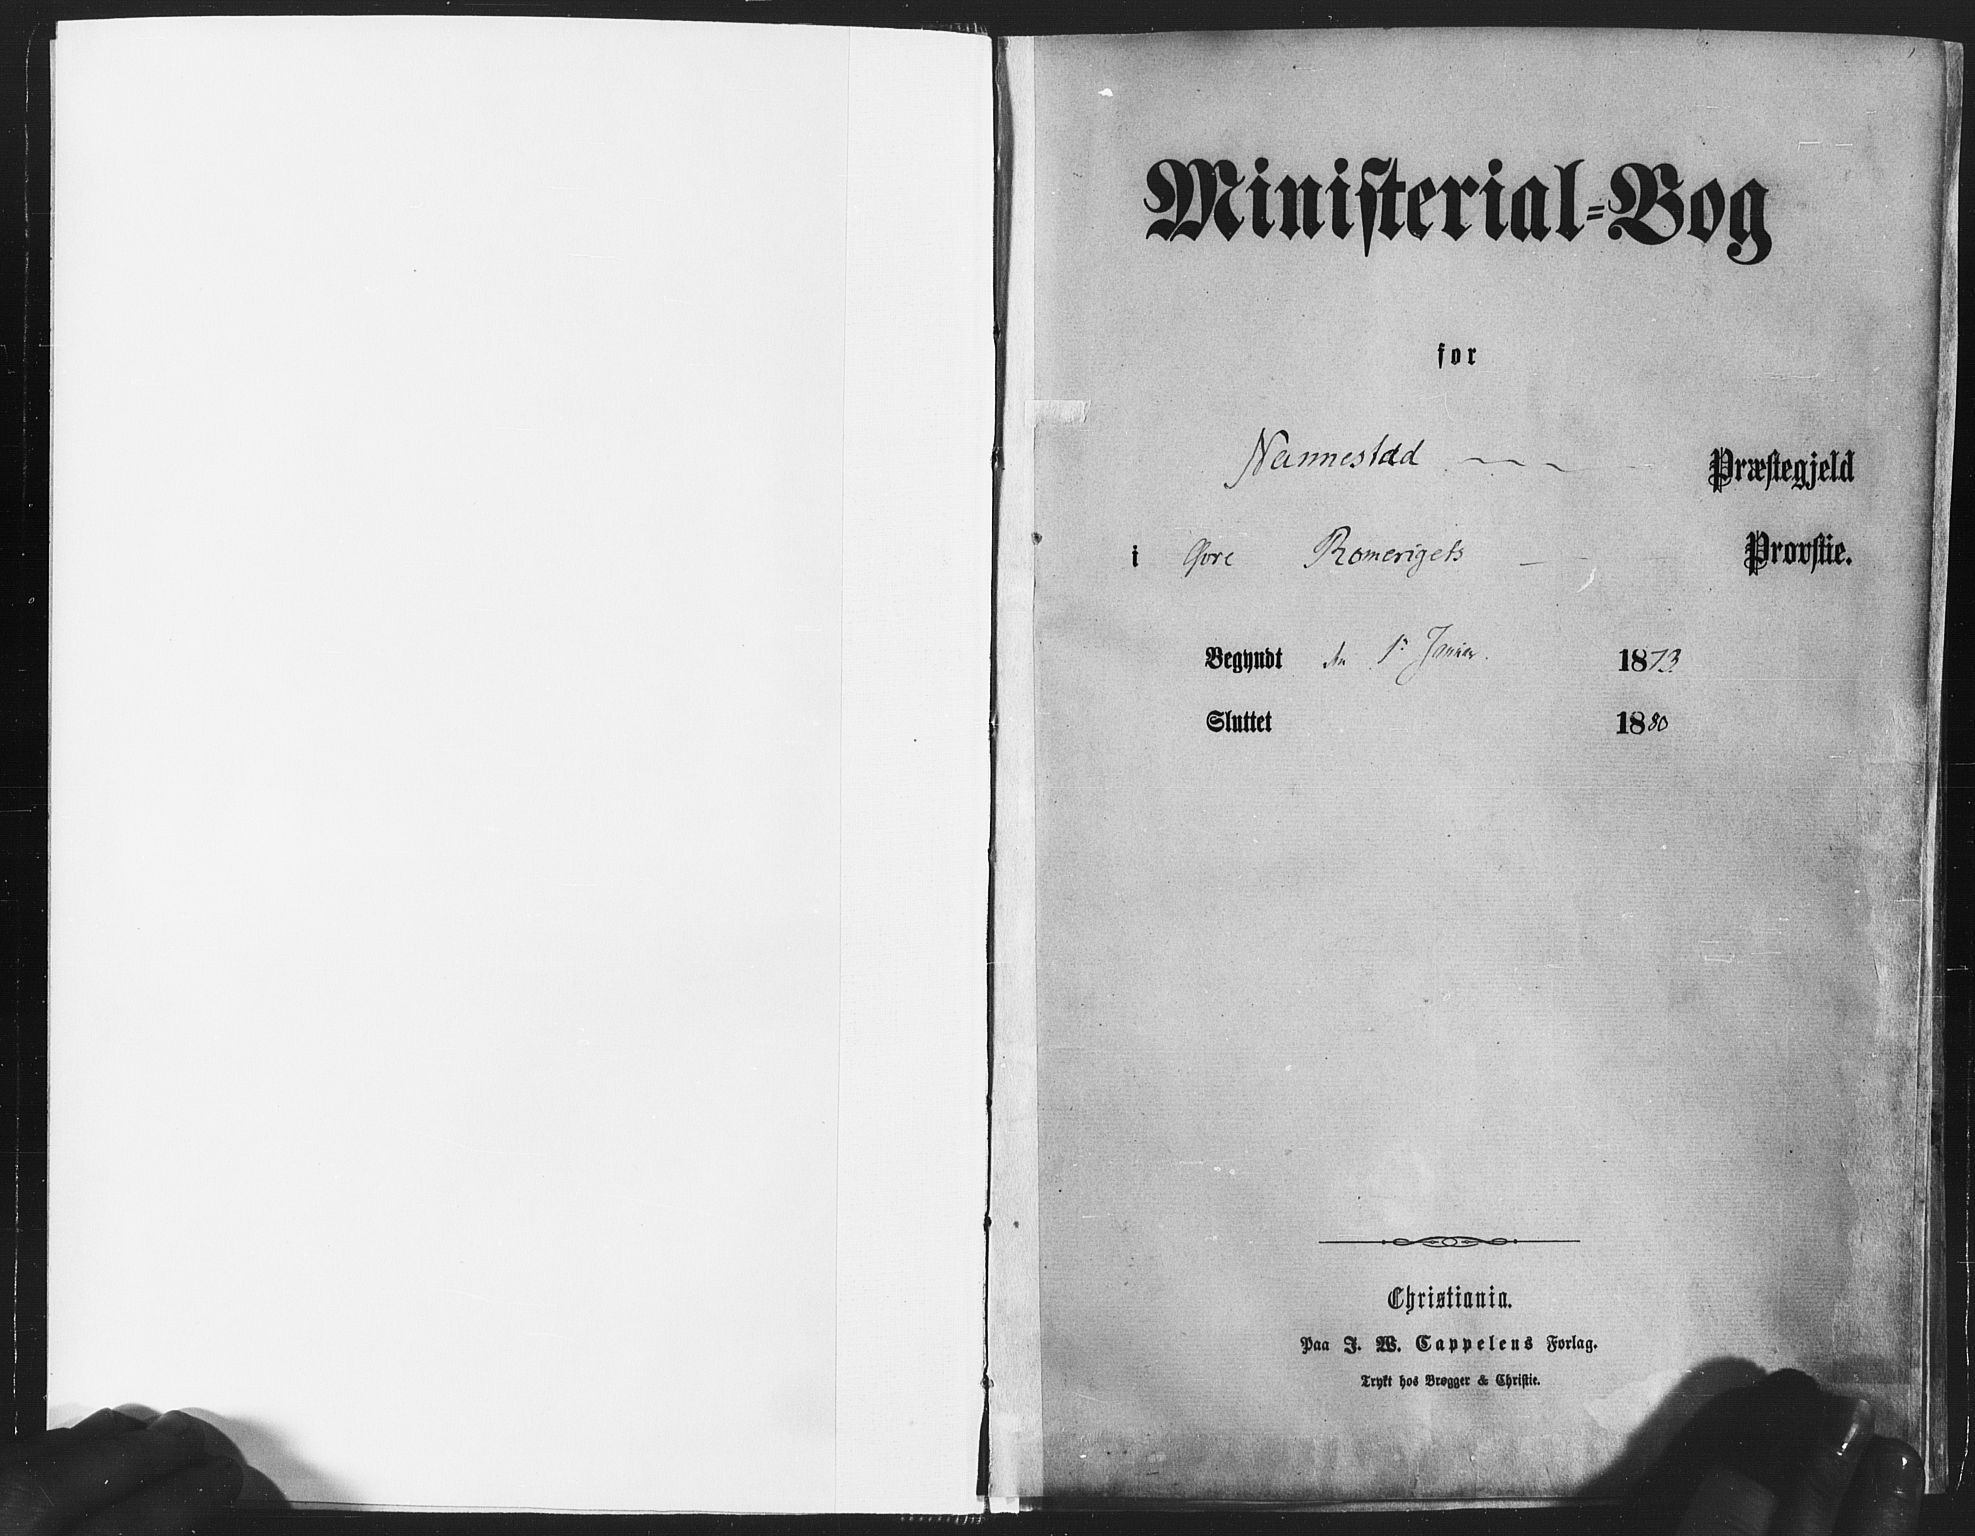 Ministerial-Bog
for
Nannestad Præstegjeld
i Øvre Romerigets Provstie.
Begyndt den 1ste Januar. 1873.
Sluttet 1880
Christiania.
Paa J. W. Cappelens Forlag.
Trykt hos Brøgger & Christie.